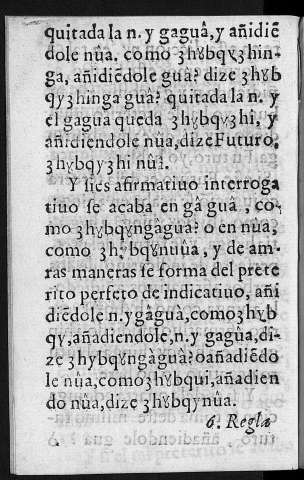 quitada la n. y gaguâ, y añidiē
dole nûa. como ȝhȣbqȣȝhin-
ga, añidiēdole guâ? dize ȝhȣb
qyȝhinga guâ? quitada la n. y
el gagua queda ȝhȣbqyȝhi, y
añidiendole nûa, dize Futuro,
ȝhȣbqyȝhi nûâ.
Y si es afirmatiuo interroga
tiuo se acaba en gâ guâ, co-
mo ȝhȣbqȣngâgua? o en nûa,
como ȝhȣbqȣnuûa, y de am-
ras maneras se forma del prete
rito perfeto de indicatiuo, añi
diēdole n. y gâguâ, como ȝhȣb
qȣ, añadiendole, n. y gaguâ, di-
ze ȝhybqȣngâguâ? o añadiēdo
le nûa, como ȝhȣbqui, añadien
do nûa, dize ȝhȣbqynûa.
6. Regla